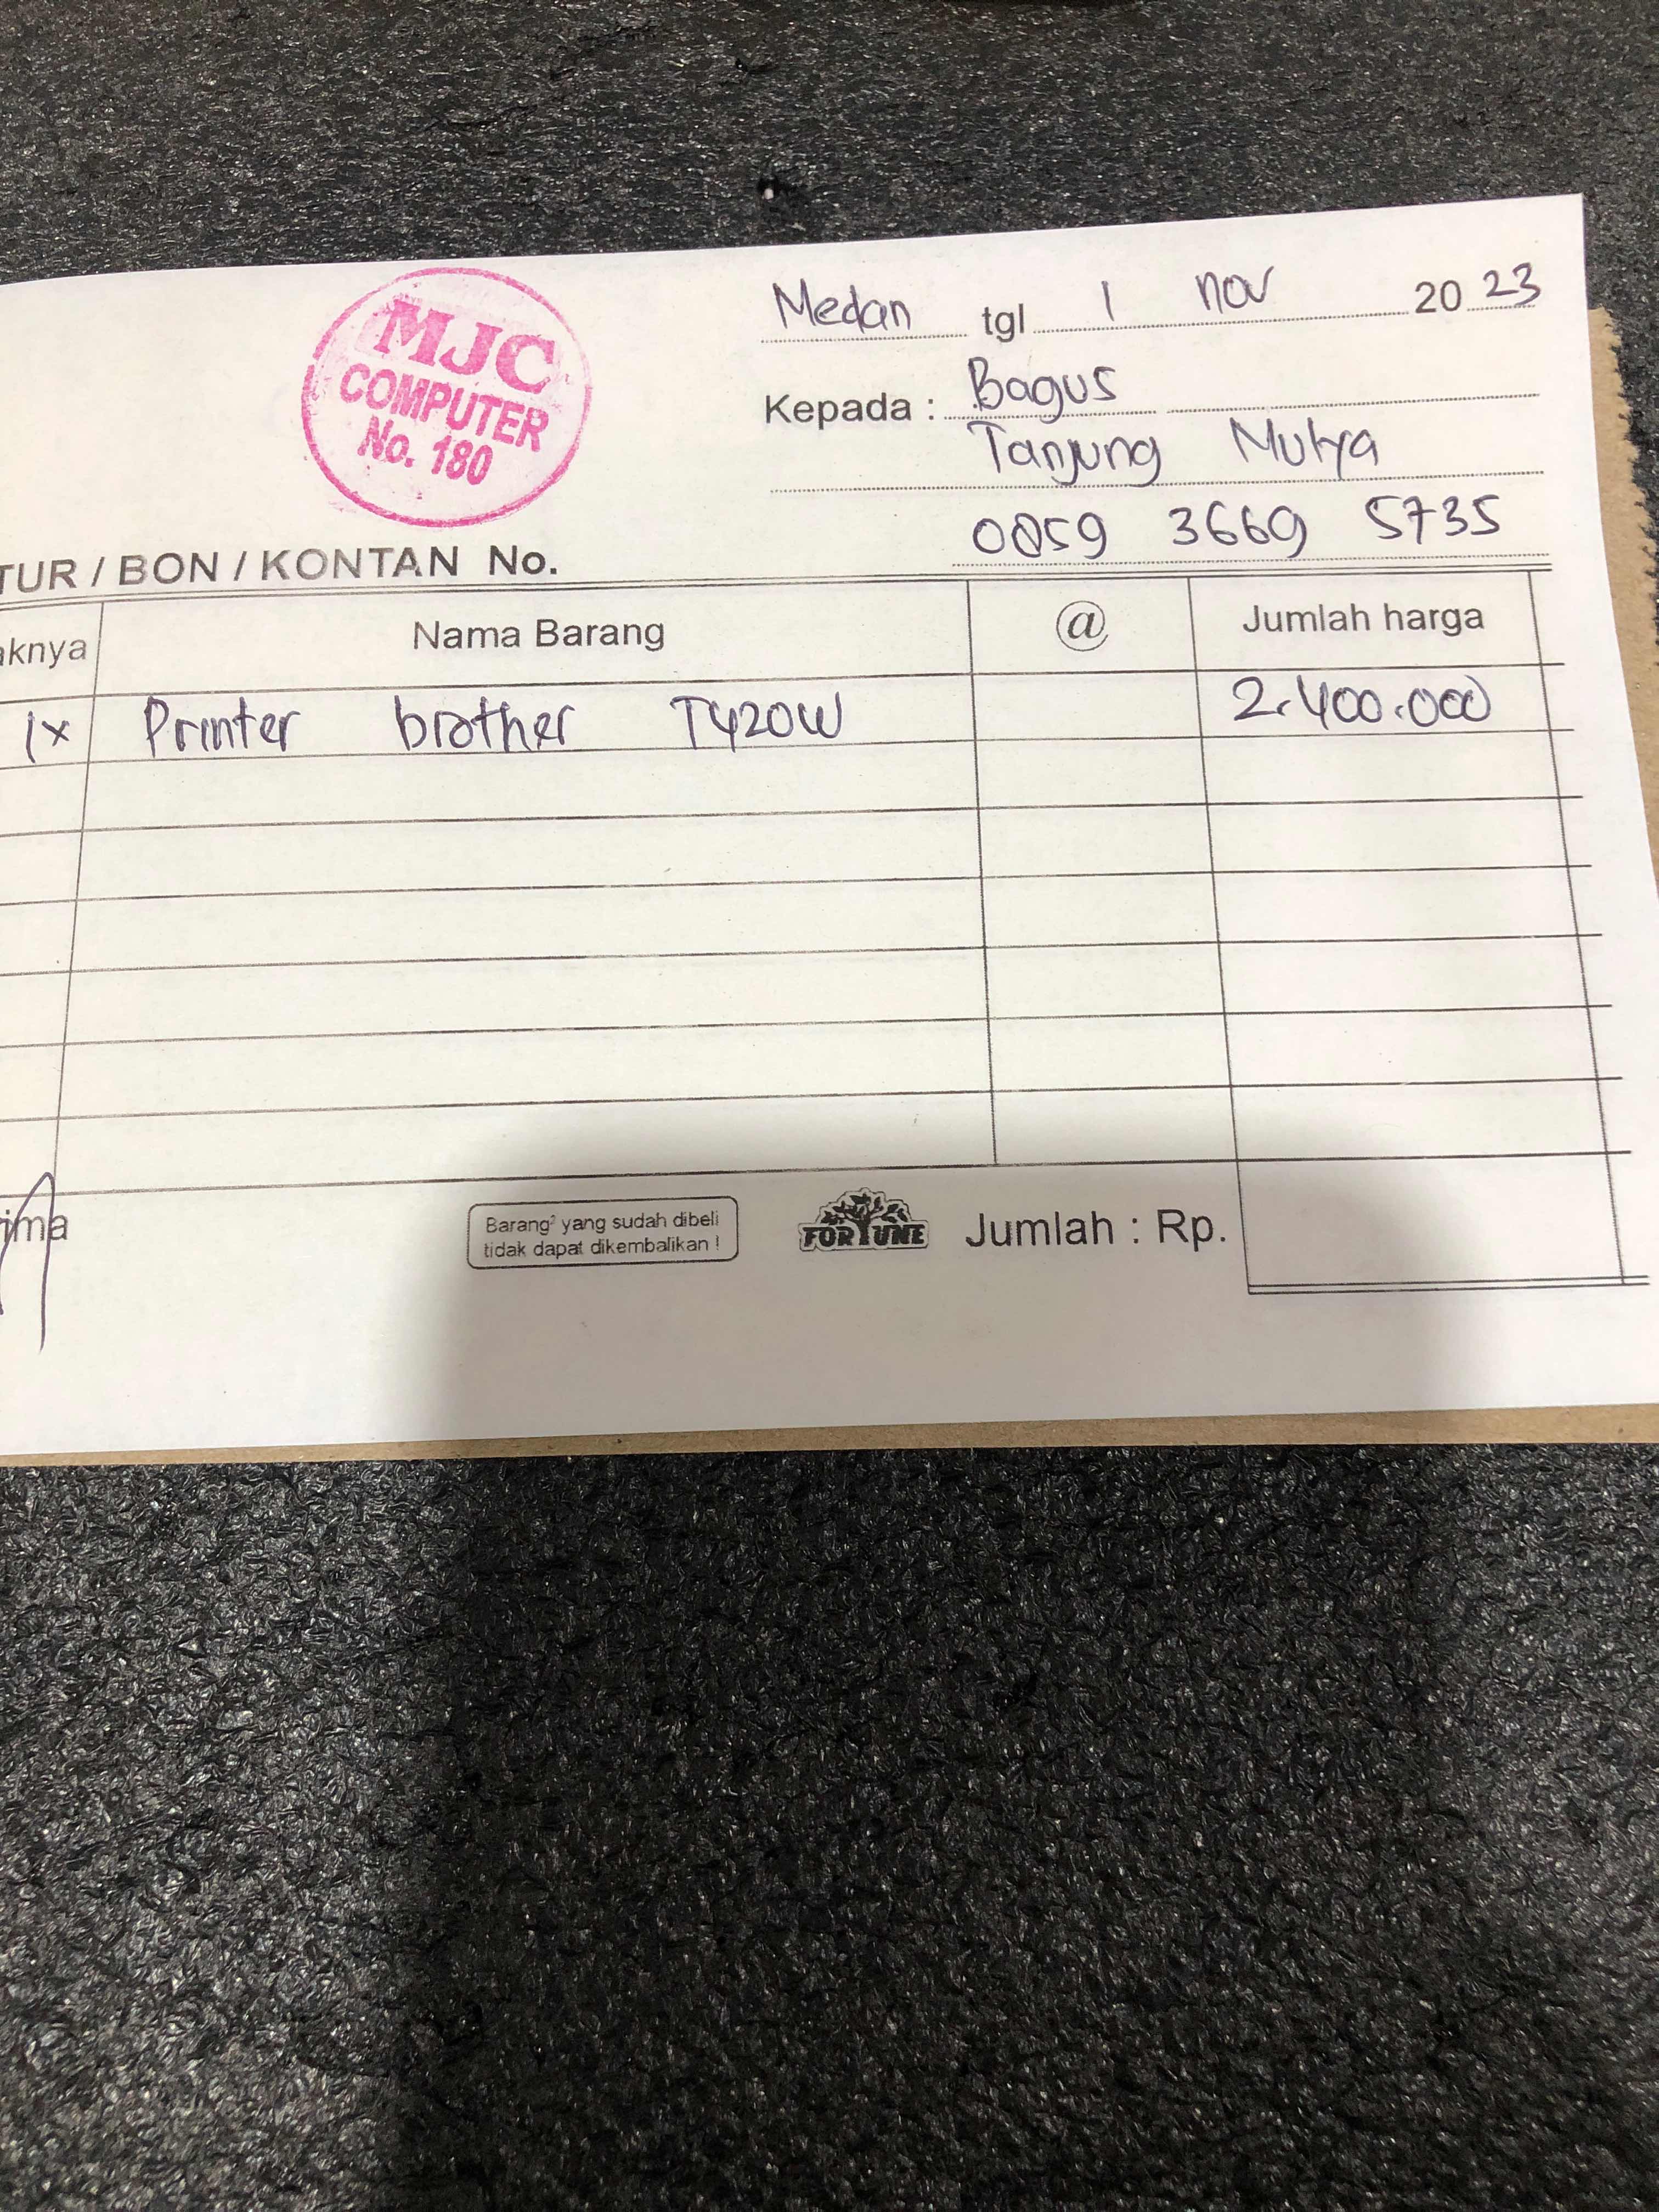 MJC
COMPUTER
No. 180
Medan tgl 1 nov 20 23
Kepada : Bagus
Tanjung Mulya
0859 3669 5735
TUR / BON / KONTAN No.
aknya Nama Barang @ Jumlah harga
1x Printer brother T420W 2.400.000
ima
Barang² yang sudah dibeli
tidak dapat dikembalikan !
FORTUNE
Jumlah : Rp.